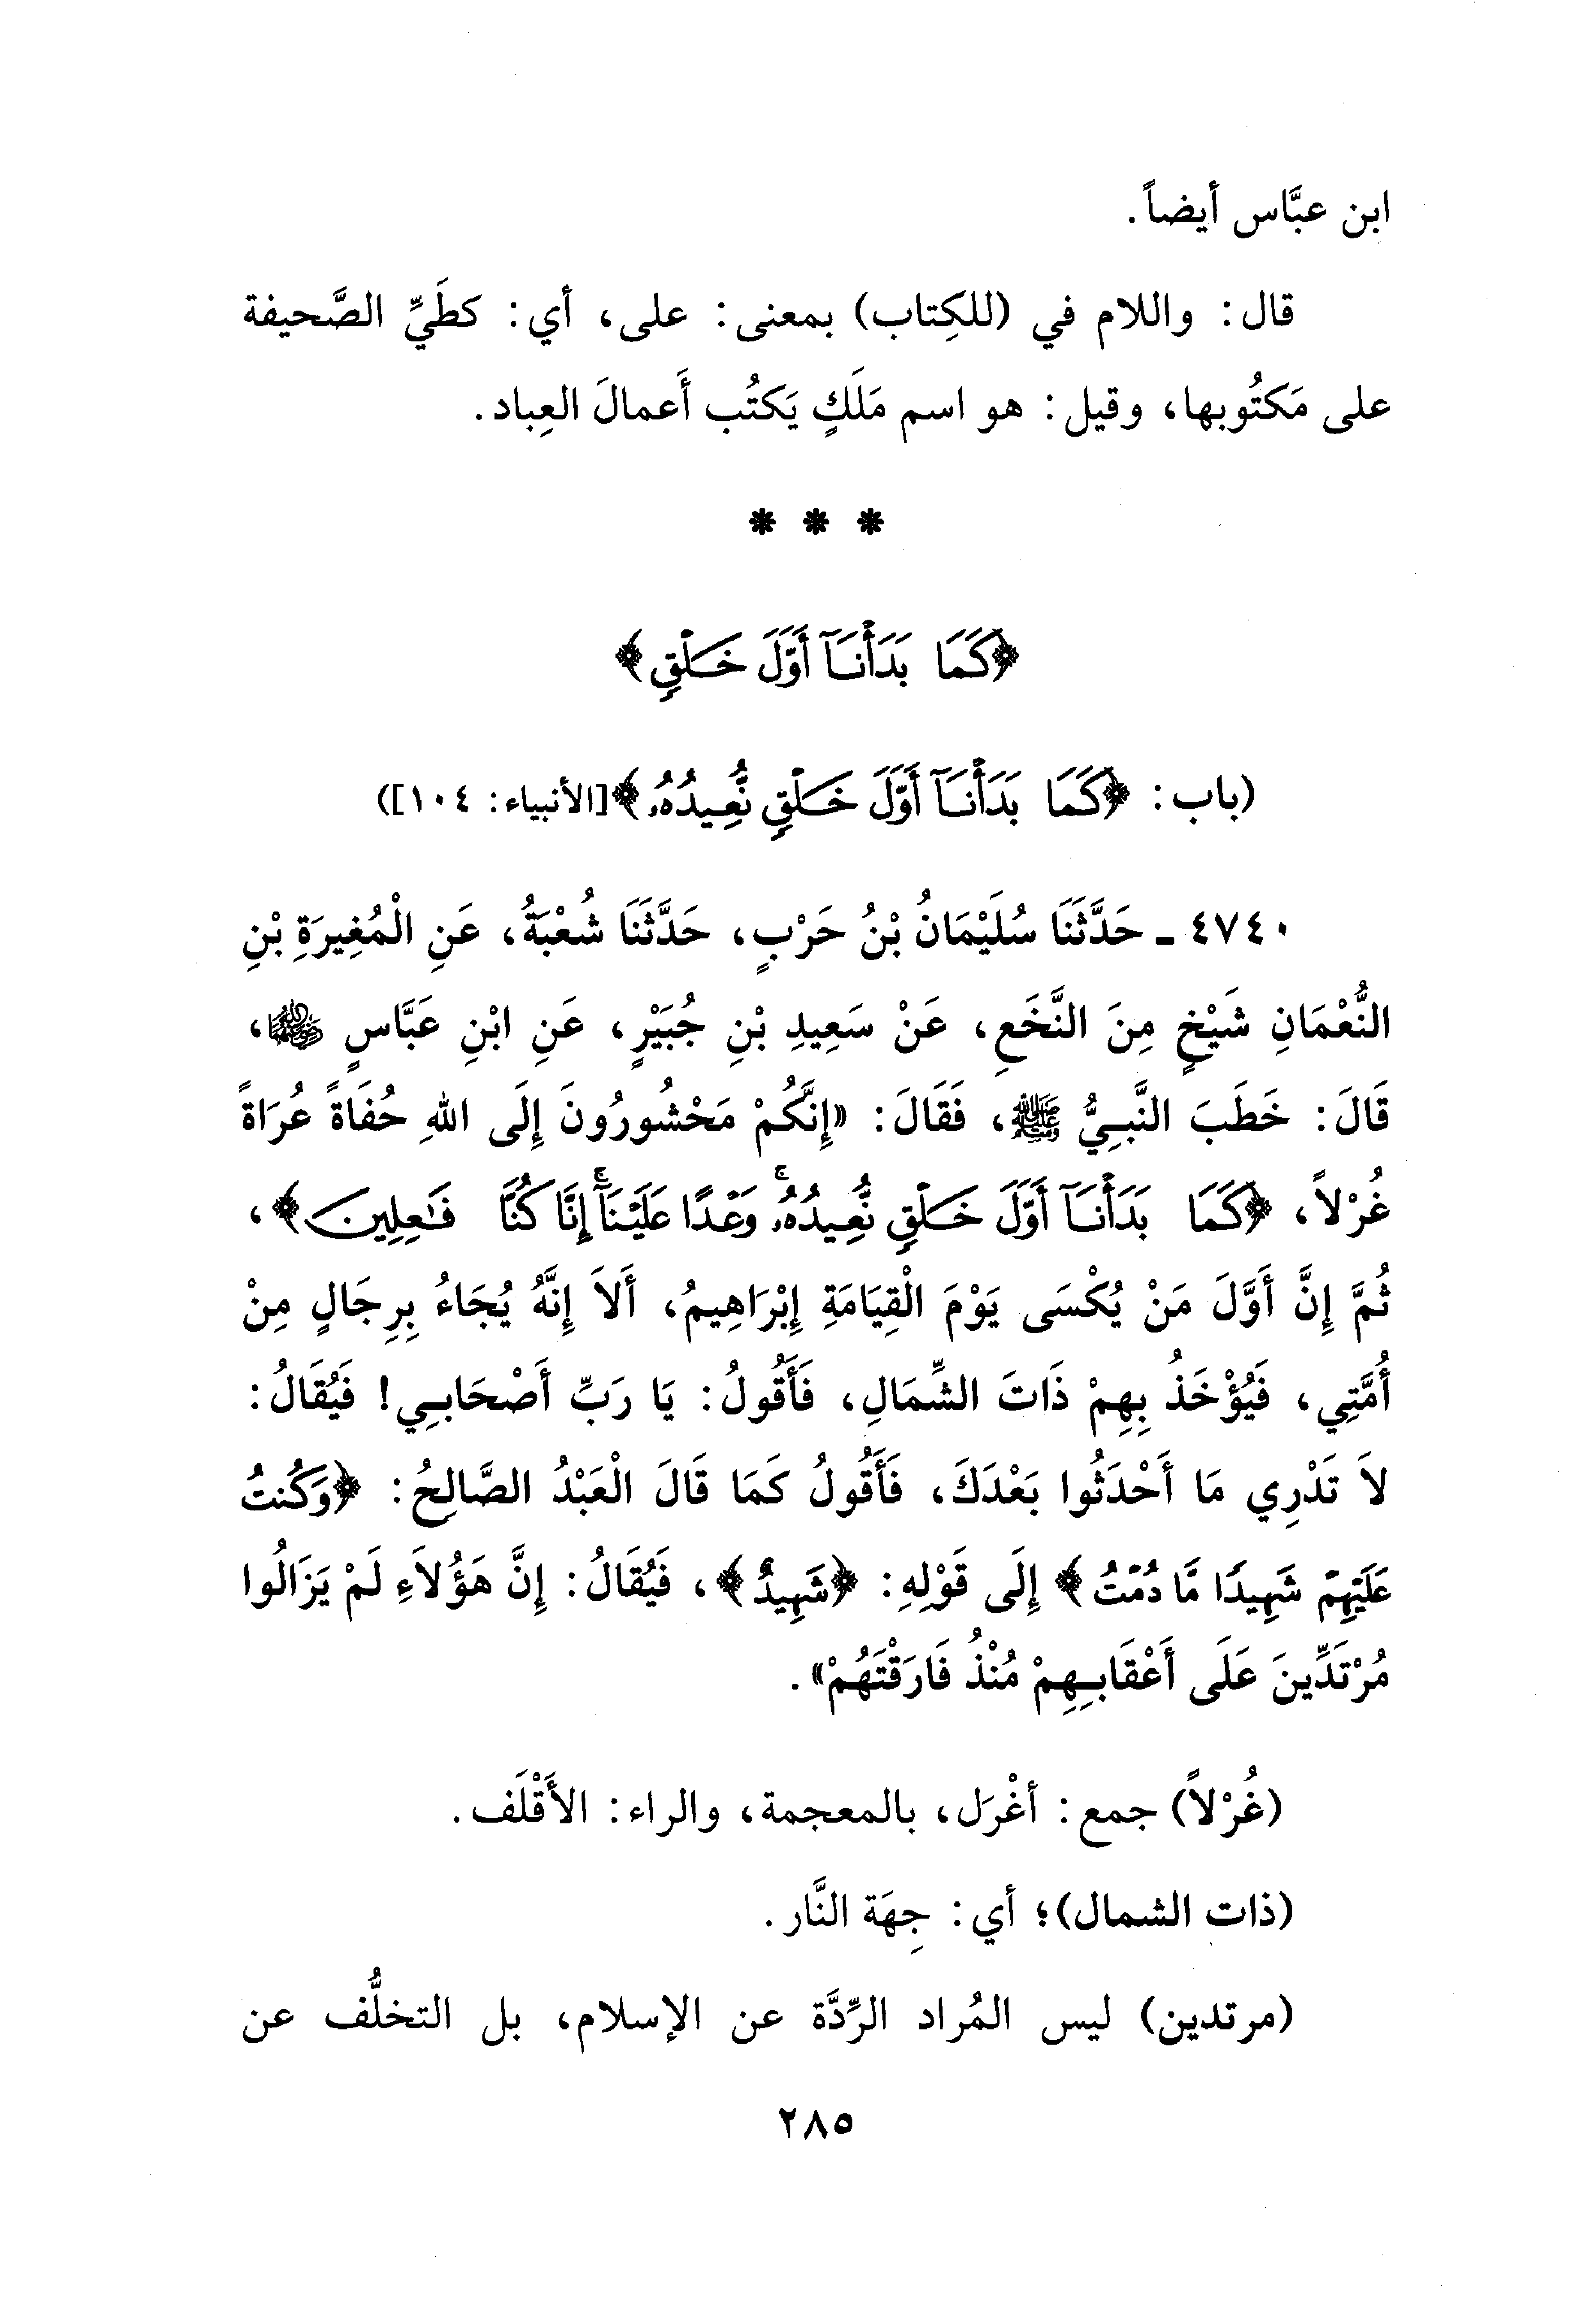 ابن عبَّاس أيضاً.
قال: واللام في (للكِتاب) بمعنى: على، أي: كطَيِّ الصَّحيفة
على مَكتُوبها، وقيل: هو اسم مَلَكٍ يَكتُب أَعمالَ العِباد.
* * *
﴿كَمَا بَدَأْنَآ أَوَّلَ خَلْقٍ﴾
(باب: ﴿كَمَا بَدَأْنَآ أَوَّلَ خَلْقٍ نُّعِيدُهُۥ﴾[الأنبياء: ١٠٤])
٤٧٤٠ ـ حَدَّثَنَا سُلَيْمَانُ بْنُ حَرْبٍ، حَدَّثَنَا شُعْبَةُ، عَنِ الْمُغِيرَةِ بْنِ
النُّعْمَانِ شَيْخٍ مِنَ النَّخَعِ، عَنْ سَعِيدِ بْنِ جُبَيْرٍ، عَنِ ابْنِ عَبَّاسٍ رضي الله عنهما،
قَالَ: خَطَبَ النَّبِيُّ ﷺ، فَقَالَ: «إِنَّكُمْ مَحْشُورُونَ إِلَى اللهِ حُفَاةً عُرَاةً
غُرْلاً، ﴿كَمَا بَدَأْنَآ أَوَّلَ خَلْقٍ نُّعِيدُهُۥۚ وَعْدًا عَلَيْنَآۚ إِنَّا كُنَّا فَٰعِلِينَ﴾،
ثُمَّ إِنَّ أَوَّلَ مَنْ يُكْسَى يَوْمَ الْقِيَامَةِ إِبْرَاهِيمُ، أَلاَ إِنَّهُ يُجَاءُ بِرِجَالٍ مِنْ
أُمَّتِي، فَيُؤْخَذُ بِهِمْ ذَاتَ الشِّمَالِ، فَأَقُولُ: يَا رَبِّ أَصْحَابِي! فَيُقَالُ:
لاَ تَدْرِي مَا أَحْدَثُوا بَعْدَكَ، فَأَقُولُ كَمَا قَالَ الْعَبْدُ الصَّالِحُ: ﴿وَكُنتُ
عَلَيْهِمْ شَهِيدًا مَّا دُمْتُ﴾ إِلَى قَوْلِهِ: ﴿شَهِيدٌ﴾، فَيُقَالُ: إِنَّ هَؤُلاَءِ لَمْ يَزَالُوا
مُرْتَدِّينَ عَلَى أَعْقَابِهِمْ مُنْذُ فَارَقْتَهُمْ».
(غُرْلاً) جمع: أغْرَل، بالمعجمة، والراء: الأَقْلَف.
(ذات الشمال)؛ أي: جِهَة النَّار.
(مرتدين) ليس المُراد الرِّدَّة عن الإسلام، بل التخلُّف عن
٢٨٥